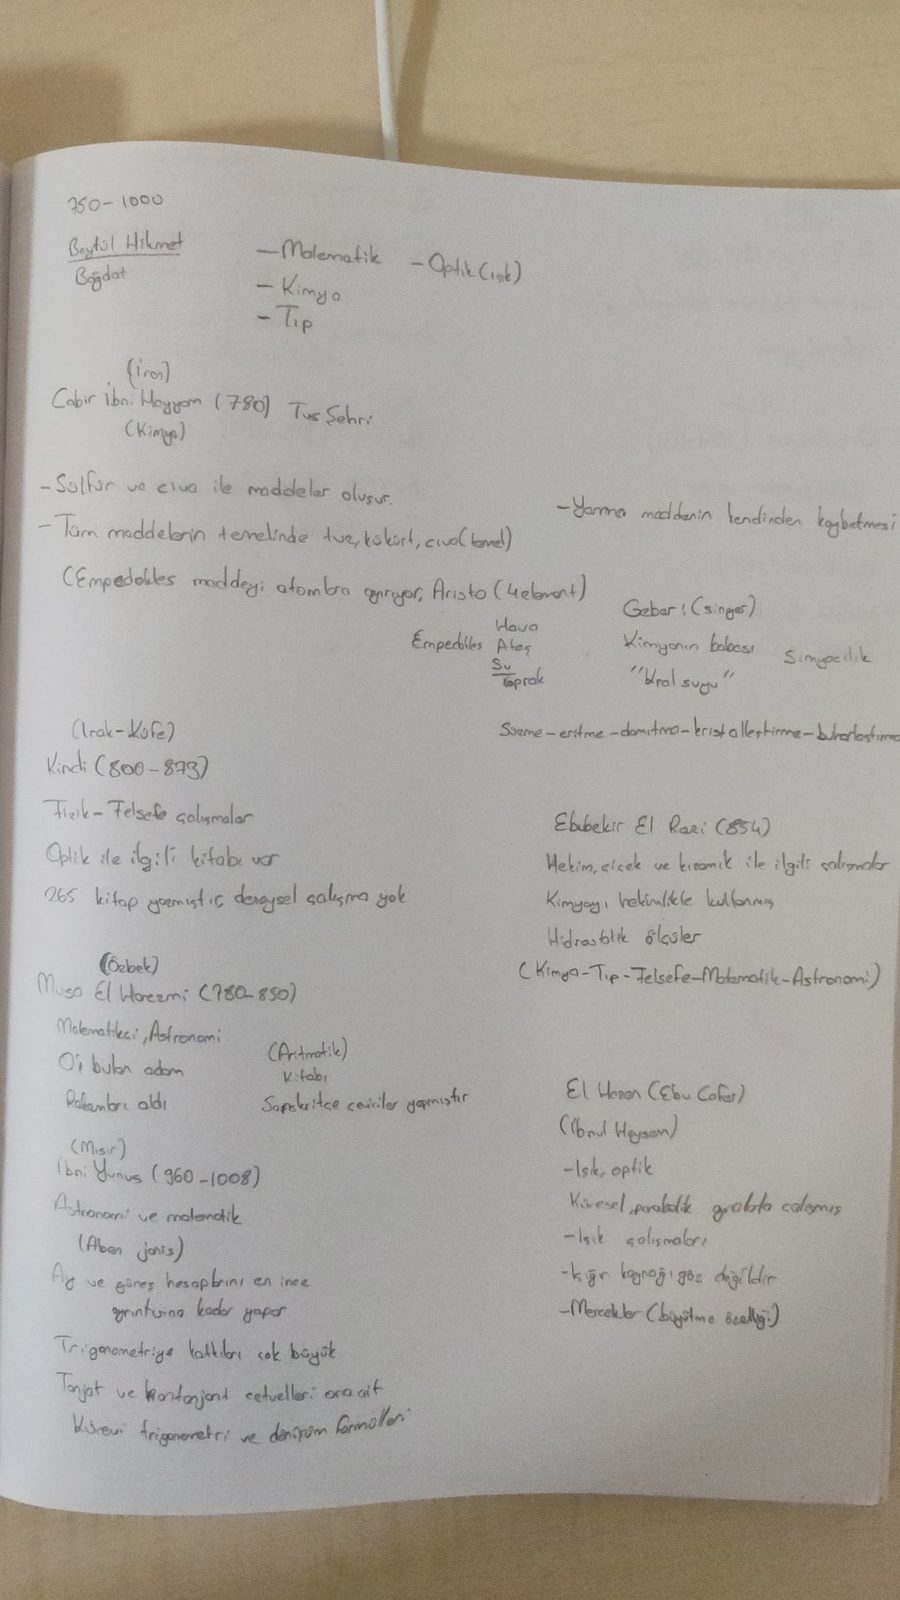 750-1000
Beytül Hikmet
Bağdat
- Matematik
- Optik (ışık)
- Kimya
- Tıp
(İran)
Cabir İbni Hayyam (780) Tus Şehri
(Kimya)
- Sülfür ve civa ile maddeler oluşur.
- Yanma maddenin kendinden kaybetmesi
- Tüm maddelerin temelinde tuz, kükürt, civa (temel)
(Empedokles maddeyi atomlara ayırıyor, Aristo (4 element)
Empedokles
Hava
Ateş
Su
Toprak
Geber: (singer)
Kimyanın babası
Simyacılık
"Kral suyu"
Süzme - eritme - damıtma - kristalleştirme - buharlaştırma
(Irak-Kufe)
Kindi (800-873)
Fizik - Felsefe çalışmalar
Optik ile ilgili kitabı var
265 kitap yazmıştır, deneysel çalışma yok
Ebubekir El Razi (854)
Hekim, çiçek ve kızamık ile ilgili çalışmalar
Kimyayı hekimlikte kullanmış
Hidrostatik ölçüler
(Kimya-Tıp-Felsefe-Matematik-Astronomi)
(Özbek)
Musa El Harezmi (780-850)
Matematikçi, Astronomi
0'ı bulan adam
Rakamları aldı
(Aritmatik)
Kitabı
Sanskritçe çeviriler yapmıştır
(Mısır)
İbni Yunus (960-1008)
Astronomi ve matematik
(Aben jonis)
Ay ve güneş hesaplarını en ince
ayrıntısına kadar yapar
Trigonometriye katkıları çok büyük
Tanjat ve kontanjant cetvelleri ona ait
Küresel trigonometri ve dönüşüm formülleri
El Hazen (Ebu Cafer)
(İbnul Heysem)
- Işık, optik
Küresel, parabolik aynalarla çalışmış
- Işık çalışmaları
- Işığın kaynağı göz değildir
- Mercekler (büyütme özelliği)